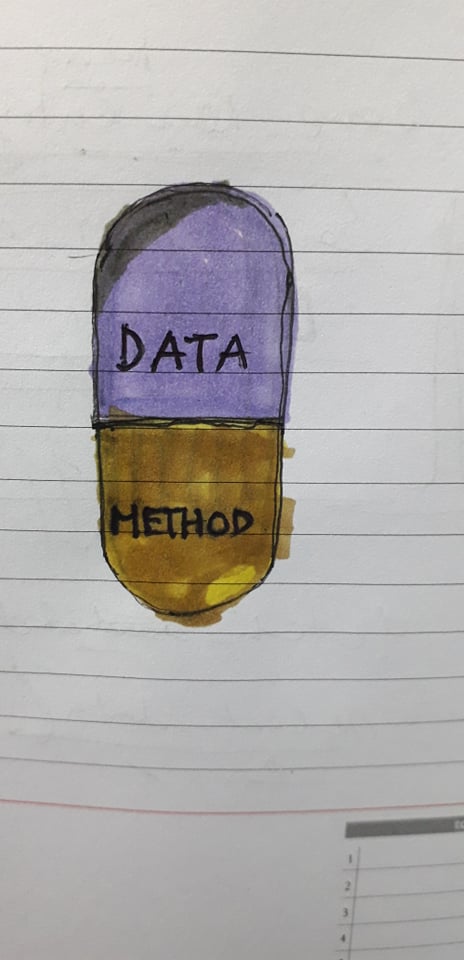 DATA
METHOD
1
2
3
4